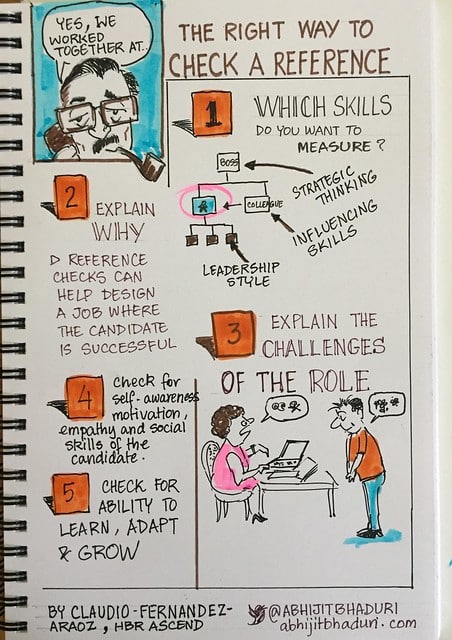 YES, WE
WORKED
TOGETHER AT..
THE RIGHT WAY TO
CHECK A REFERENCE
1
WHICH SKILLS
DO YOU WANT TO
MEASURE?
BOSS
COLLEAGUE
STRATEGIC
THINKING
INFLUENCING
SKILLS
LEADERSHIP
STYLE
2
EXPLAIN
WHY
▷ REFERENCE
CHECKS CAN
HELP DESIGN
A JOB WHERE
THE CANDIDATE
IS SUCCESSFUL
3
EXPLAIN THE
CHALLENGES
OF THE ROLE
4
check for
self-awareness
motivation,
empathy and social
skills of the
candidate.
5
CHECK FOR
ABILITY TO
LEARN, ADAPT
& GROW
BY CLAUDIO-FERNANDEZ-
ARAOZ, HBR ASCEND
@ABHIJITBHADURI
abhijitbhaduri.com